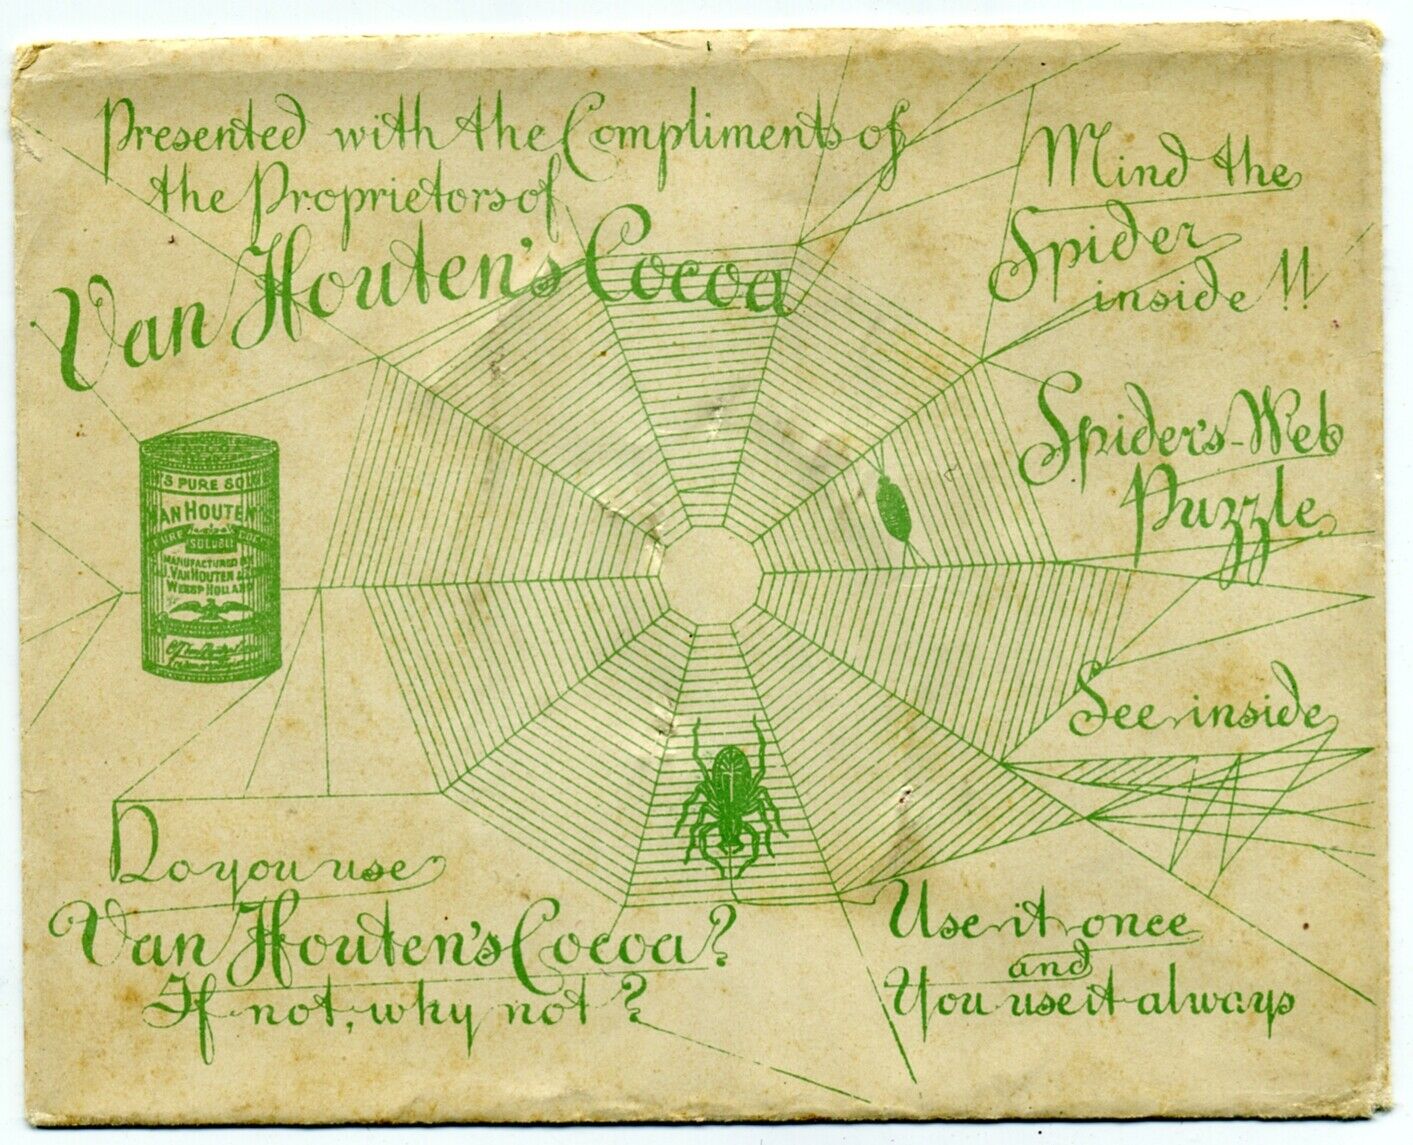 Presented with the Compliments of
the Proprietors of
Van Houten's Cocoa
Mind the
Spider
inside !!
Spider's-Web
Puzzle
See inside
'S PURE SOL
VAN HOUTEN'S
PURE SOLUBLE COCOA
MANUFACTURED BY
J. VAN HOUTEN &
WEESP HOLLAND
Do you use
Van Houten's Cocoa?
If not, why not?
Use it once
and
You use it always